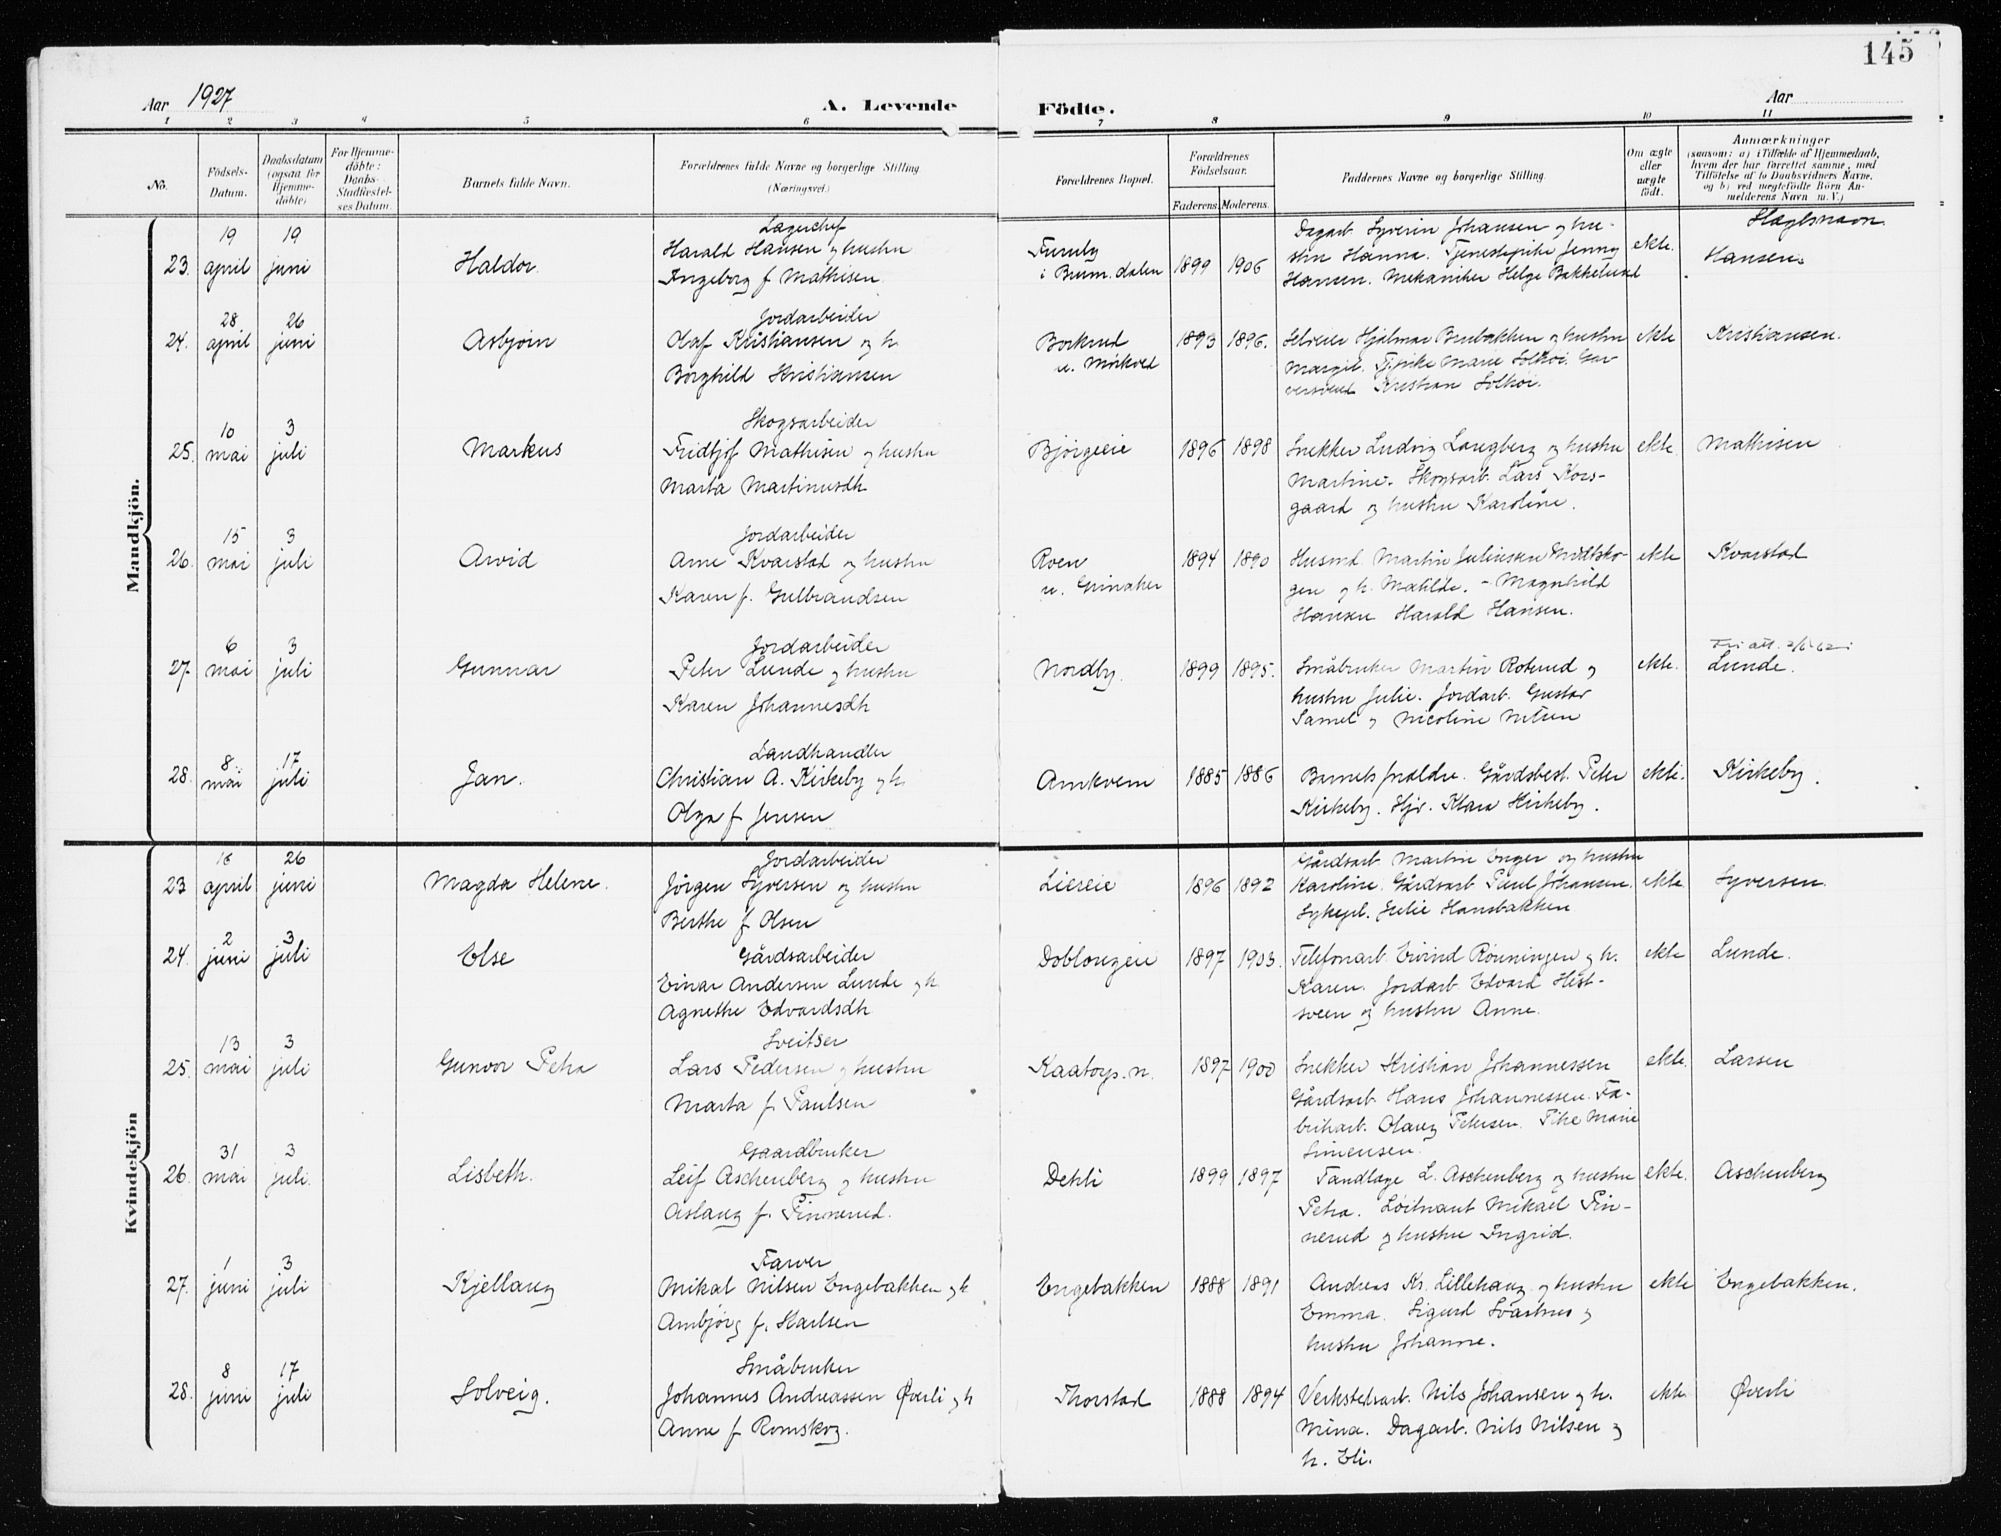 145
Aar 1927
A. Levende
Födte.
Aar
1 2 3 4 5 6 7 8 9 10 11
No.
Födsels-
Datum.
Daabsdatum
(ogsaa for
Hjemme-
döbte)
For Hjemme-
döbte:
Daabs-
Stadfæstel-
ses Datum.
Barnets fulde Navn.
Forældrenes fulde Navne og borgerlige Stilling
(Næringsvei.)
Forældrenes Bopæl.
Forældrenes
Födselsaar.
Faderens. Moderens.
Faddernes Navne og borgerlige Stilling.
Om ægte
eller
uægte
födt.
Anmærkninger
(saasom: a) i Tilfælde af Hjemmedaab,
hvem der har forrettet samme, med
Tilföielse af to Daabsvidners Navne,
og b) ved uægtefödte Börn An-
melderens Navn m. V.)
Mandkjön.
Slegtsnavn.
23. 19 april 19 juni Haldor.
Lagerchef
Harald Hansen og hustru
Ingeborg f. Mathisen
Furuly
i Brum.dalen 1899 1906
Dagarb. Syverin Johansen og hu-
stru Hanna. Tjenestepike Jenny
Hansen. Mekaniker Helge Bakkelund
ekte. Hansen.
24. 28 april 26 juni Asbjørn
Jordarbeider
Olaf Kristiansen og h.
Borghild Kristiansen
u. Mørkved 1893 1896.
Selveier Hjalmar Brubakken og hustru
Margit. Tj.pike Marie Solhøi. Gar-
versvend Kristian Solhøi.
ekte Kristiansen.
25. 10 mai 3 juli Markus
Skogsarbeider
Fridtjof Mathisen og hustru
Marta Martinusdh
Bjørgeeie 1896 1898
Snekker Ludvig Langberg og hustru
Martine. Skogsarb. Lars Kors-
gaard og hustru Karoline.
ekte. Mathisen
26. 15 mai 3 juli Arvid
Jordarbeider
Arne Kvarstad og hustru
Karen f. Gulbrandsen
Roen
u. Grinaker 1894 1890
Husmd. Martin Juliussen Midtsko-
gen og h. Matilde. - Magnhild
Hansen Harald Hansen.
ekte Kvarstad
27. 6 mai 3 juli Gunnar
Jordarbeider
Peter Lunde og hustru
Karen Johannesdh
Nordby. 1899 1895.
Småbruker Martin Roterud og
hustru Julie. Jordarb. Gustav
Samel og Nicoline
ekte. Lunde.
28. 8. mai 17 juli Jan.
Landhandler
Christian A. Kirkeby og h.
Olga f. Jensen
Arnkvern 1885 1886
Barnets forældre. Gårdsbest. Peter
Kirkeby. Hjr. Klara Kirkeby.
ekte. Kirkeby.
Kvindekjön
23 april 26 juni Magda Helene.
Jordarbeider
Jørgen Syversen og hustru
Berthe f. Olsen
Liereie 1896 1892
Gårdsarb. Martin Enger og hustru
Karoline. Gårdsarb. Paul Johansen.
Sykepl. Julie Hansbakken
ekte. Syversen.
24. 2 juni 3 juli Else
Gårdsarbeider
Einar Andersen Lunde og h.
Agnethe Edvardsdh
Doblougeie 1897 1903.
Telefonarb. Eivind Rønningen og h.
Karen. Jordarb. Edvard Hest-
sveen og hustru Anne.
ekte Lunde.
25. 13 mai 3 juli Gunvor Petra
Sveitser
Lars Pedersen og hustru
Marta f. Paulsen
Kaatorp. n. 1897 1900
Snekker Kristian Johannessen
Gårdsarb. Hans Johannessen. Fa-
brikarb. Olaug Petersen. Pike Marie
Simensen.
ekte. Larsen
26. 31 mai 3 juli. Lisbeth.
Gaardbruker
Leif Aschenberg og hustru
Aslaug f. Finnerud.
Dehli 1899 1897
Tandlæge L. Aschenberg og hustru
Petra. Løitnant Mikael Fin-
nerud og hustru Ingrid.
ekte. Aschenberg
27. 1 juni 3 juli Kjellaug
Farver
Mikal Nilsen Engebakken og h
Ambjørg f. Karlsen
Engebakken 1888 1891
Andreas Kr. Lillehaug og hustru
Emma. Sigurd Svartnes og
hustru Johanne.
ekte Engebakken.
28. 8 juni 17 juli Solveig.
Småbruker
Johannes Andreassen Øverli og h
Anne f. Romskog.
Thorstad 1888 1894
Verkstedsarb. Nils Johansen og h.
Mina. Dagarb. Nils Nilsen og
h. Eli.
ekte. Øverli